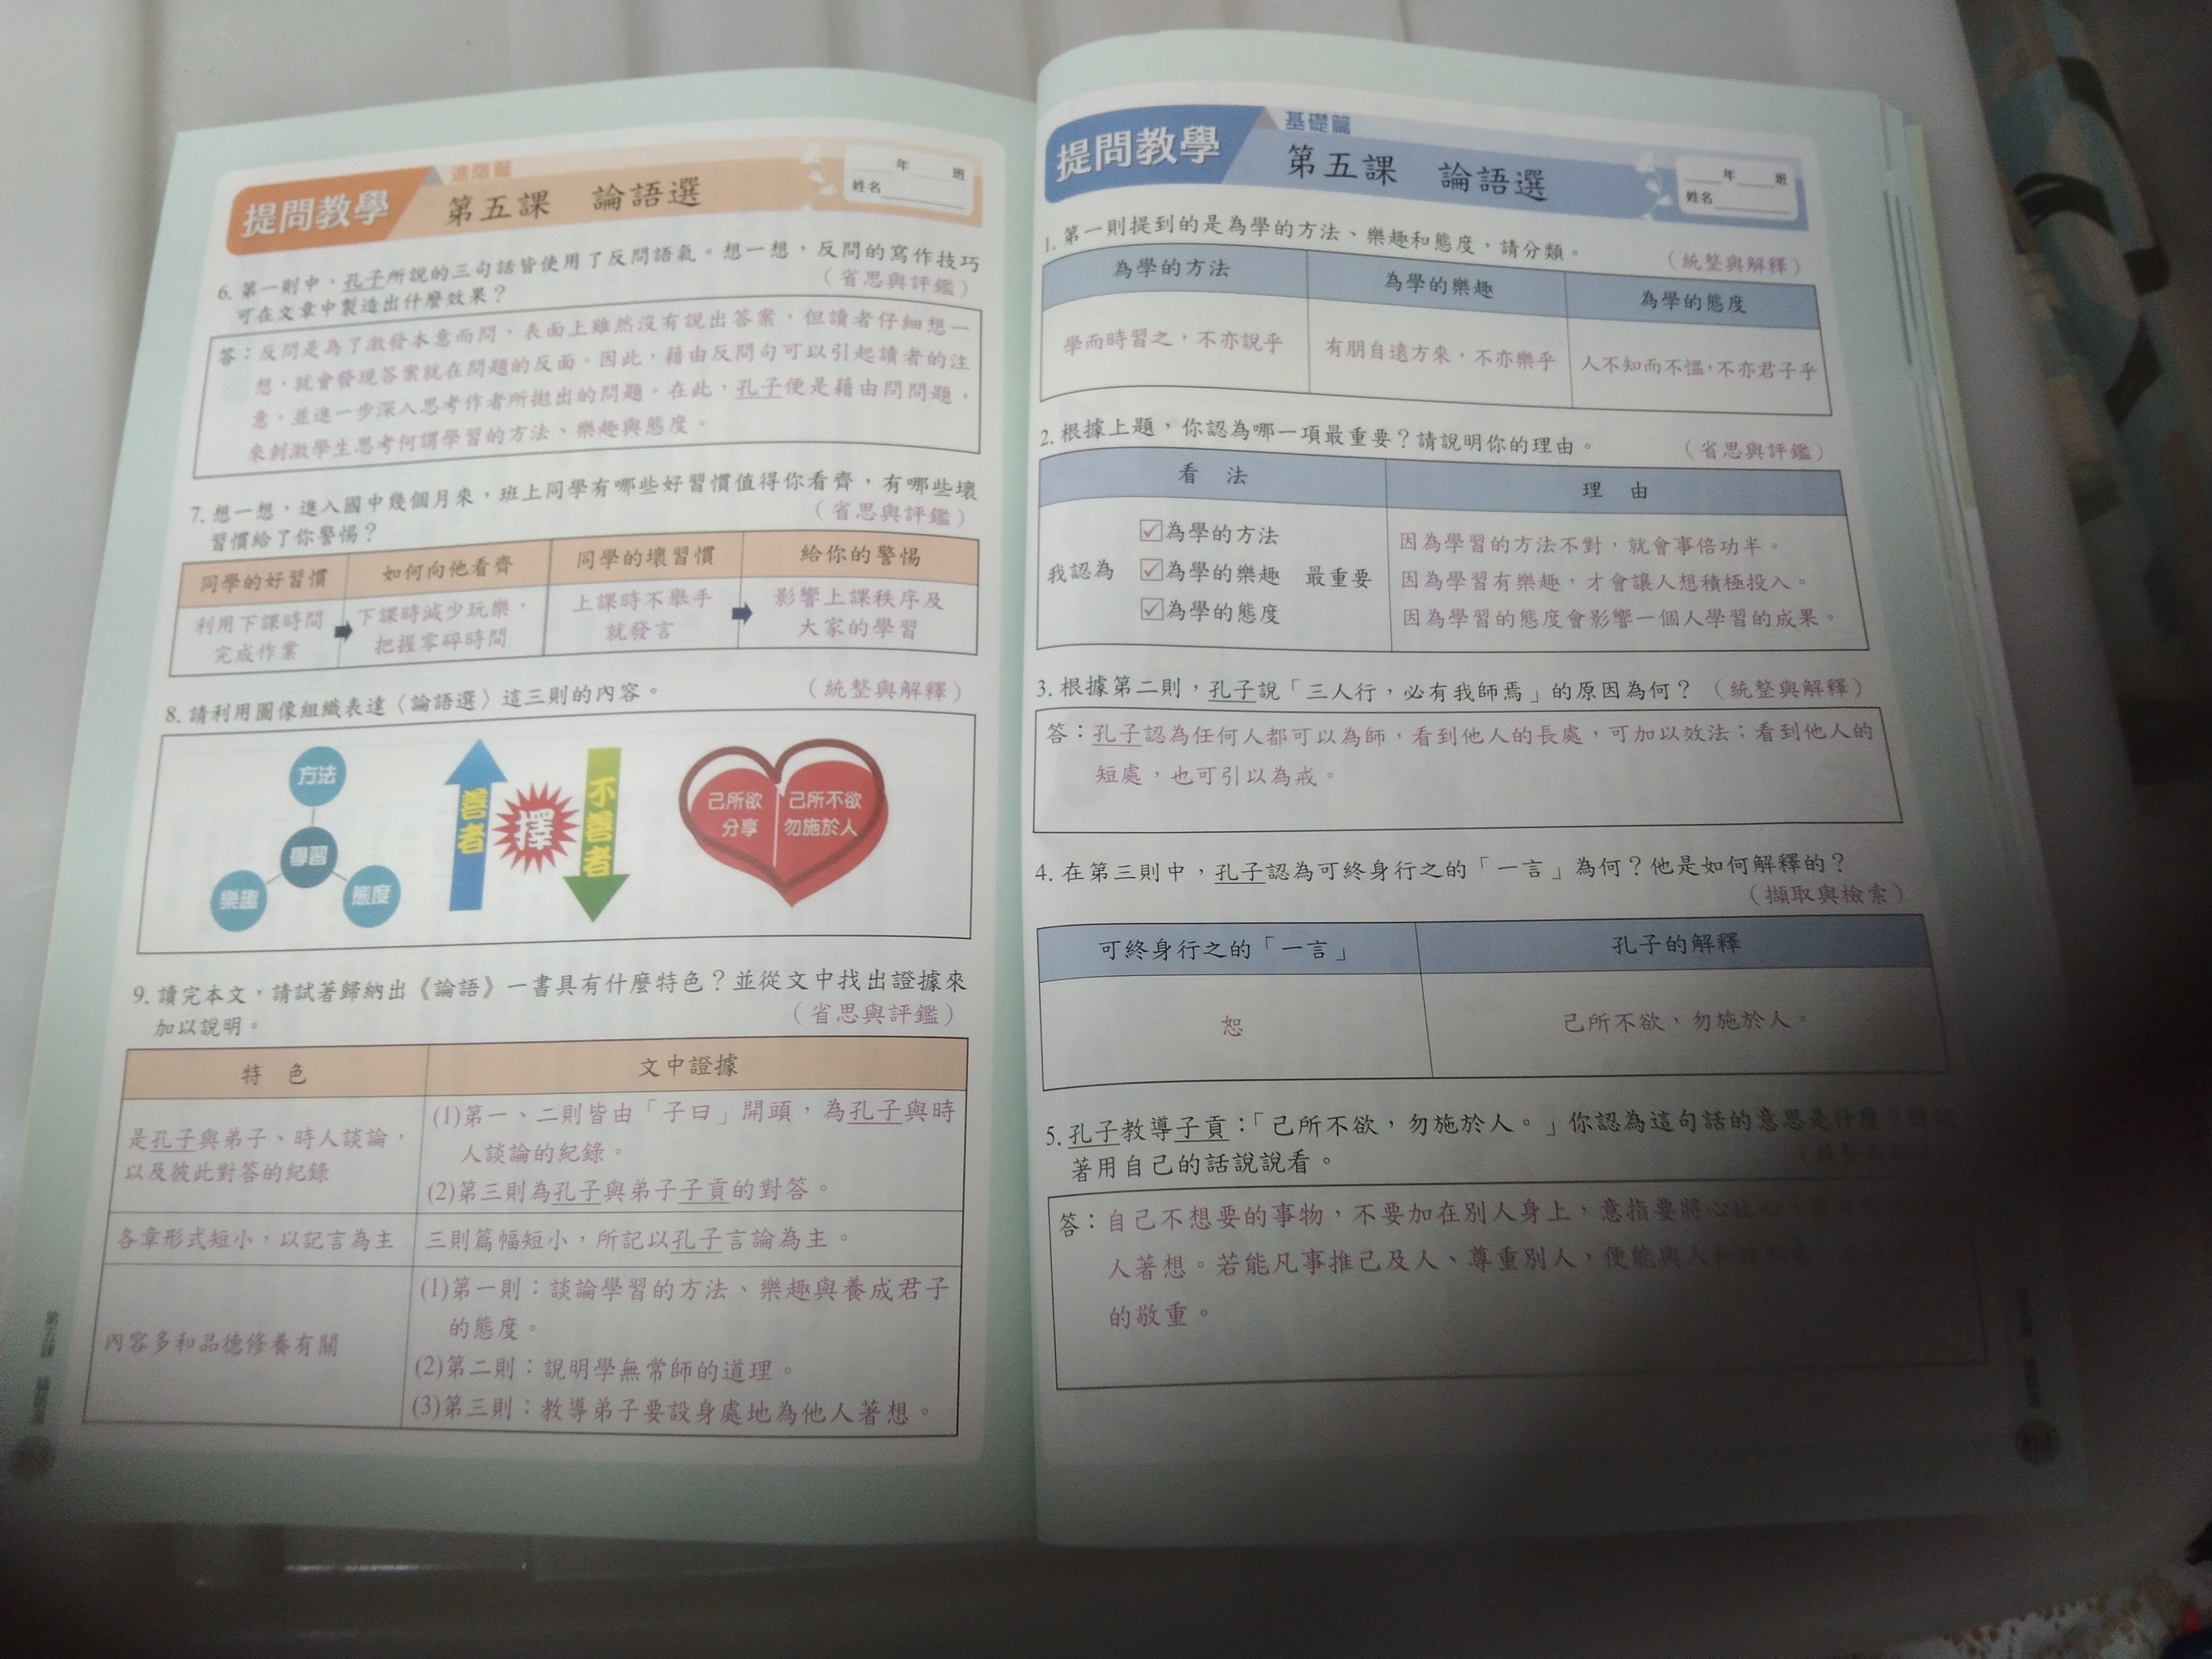 進階篇
提問教學
第五課 論語選
年 班
姓名
6. 第一則中，孔子所說的三句話皆使用了反問語氣。想一想，反問的寫作技巧
可在文章中製造出什麼效果？
（省思與評鑑）
答：反問是為了激發本意而問，表面上雖然沒有說出答案，但讀者仔細想一
想，就會發現答案就在問題的反面。因此，藉由反問句可以引起讀者的注
意，並進一步深入思考作者所拋出的問題。在此，孔子便是藉由問問題，
來刺激學生思考何謂學習的方法、樂趣與態度。
7. 想一想，進入國中幾個月來，班上同學有哪些好習慣值得你看齊，有哪些壞
習慣給了你警惕？
（省思與評鑑）
同學的好習慣 如何向他看齊 同學的壞習慣 給你的警惕
利用下課時間 下課時減少玩樂， 上課時不舉手 影響上課秩序及
完成作業 把握零碎時間 就發言 大家的學習
8. 請利用圖像組織表達〈論語選〉這三則的內容。 （統整與解釋）
方法
學習
樂趣
態度
善者
擇
不善者
己所欲 己所不欲
分享 勿施於人
9. 讀完本文，請試著歸納出《論語》一書具有什麼特色？並從文中找出證據來
加以說明。
（省思與評鑑）
特 色 文中證據
是孔子與弟子、時人談論，
以及彼此對答的紀錄
(1)第一、二則皆由「子曰」開頭，為孔子與時
人談論的紀錄。
(2)第三則為孔子與弟子子貢的對答。
各章形式短小，以記言為主 三則篇幅短小，所記以孔子言論為主。
內容多和品德修養有關
(1)第一則：談論學習的方法、樂趣與養成君子
的態度。
(2)第二則：說明學無常師的道理。
(3)第三則：教導弟子要設身處地為他人著想。
基礎篇
提問教學
第五課 論語選
年 班
姓名
1. 第一則提到的是為學的方法、樂趣和態度，請分類。 （統整與解釋）
為學的方法 為學的樂趣 為學的態度
學而時習之，不亦說乎 有朋自遠方來，不亦樂乎 人不知而不慍，不亦君子乎
2. 根據上題，你認為哪一項最重要？請說明你的理由。 （省思與評鑑）
看 法 理 由
我認為
為學的方法
為學的樂趣 最重要
為學的態度
因為學習的方法不對，就會事倍功半。
因為學習有樂趣，才會讓人想積極投入。
因為學習的態度會影響一個人學習的成果。
3. 根據第二則，孔子說「三人行，必有我師焉」的原因為何？（統整與解釋）
答：孔子認為任何人都可以為師，看到他人的長處，可加以效法；看到他人的
短處，也可引以為戒。
4. 在第三則中，孔子認為可終身行之的「一言」為何？他是如何解釋的？
（擷取與檢索）
可終身行之的「一言」 孔子的解釋
恕 己所不欲，勿施於人。
5. 孔子教導子貢：「己所不欲，勿施於人。」你認為這句話的意思是什麼？
著用自己的話說說看。
答：自己不想要的事物，不要加在別人身上，意指要將心比心
人著想。若能凡事推己及人、尊重別人，便能與人
的敬重。